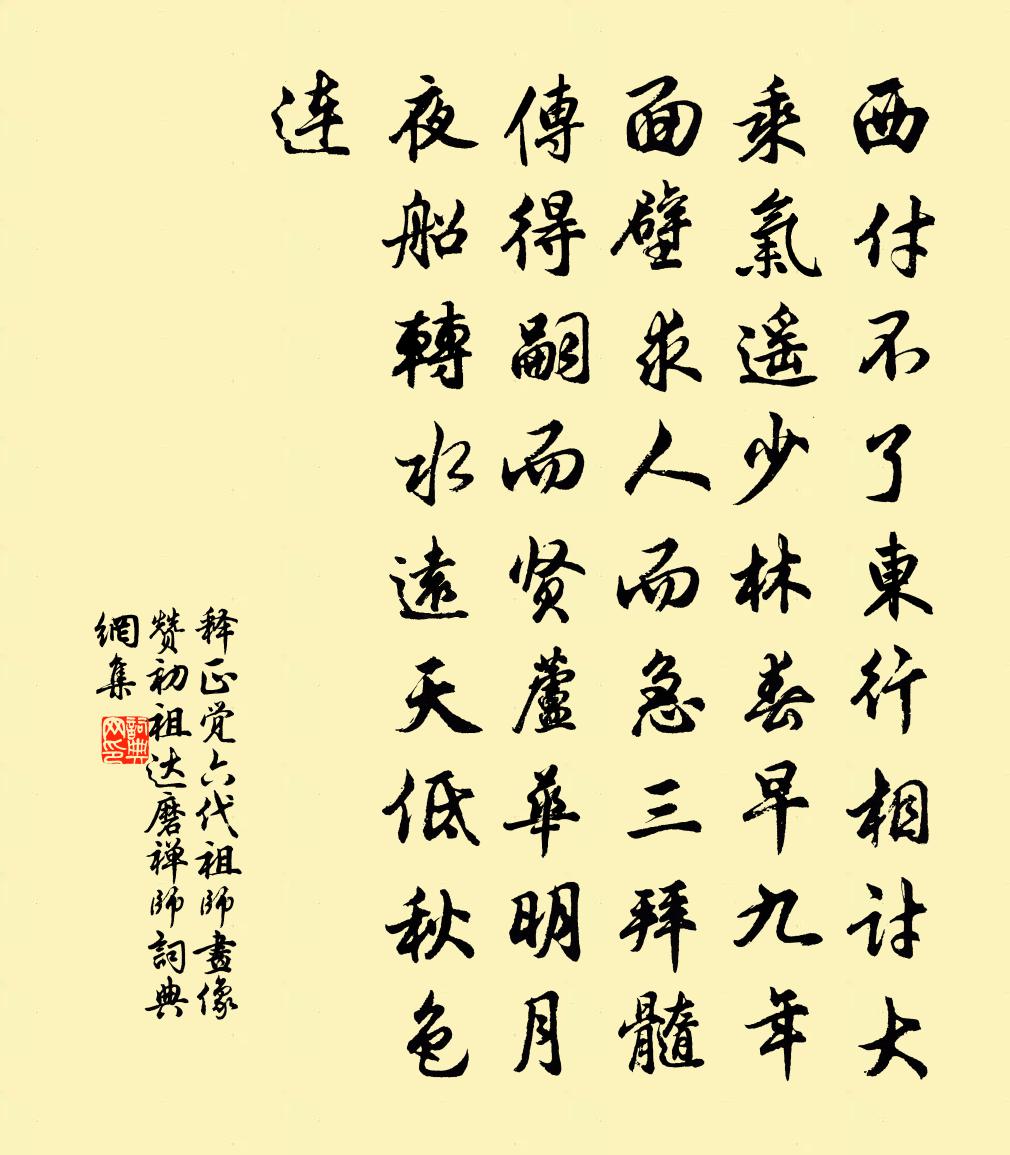 西付不了東行相討大
乘氣遥少林春早九年
面壁求人而急三拜髓
傳得嗣而贤蘆華明月
夜船轉水遠天低秋色
連
释正觉六代祖師畫像
赞初祖达磨禅師詞典
網集
詞典
网印